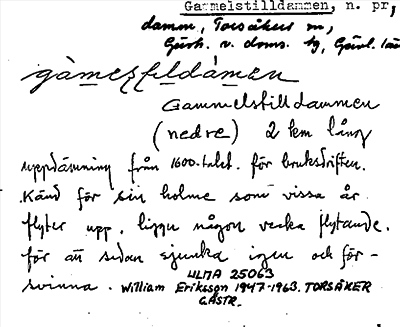 Gammelstilldammen, n. pr,
damm, Torsåkers sn,
Gävlt. v. doms. sg, Gävl. län
Gammelstilldammen
(nedre) 2 km lång
uppdämning från 1600-talet. för bruksdriften.
Känd för sin holme som vissa år
flyter upp, ligger någon vecka flytande.
för att sedan sjunka igen och för-
svinna.
ULMA 25063
William Eriksson 1947-1963. TORSÅKER
GÄSTR.